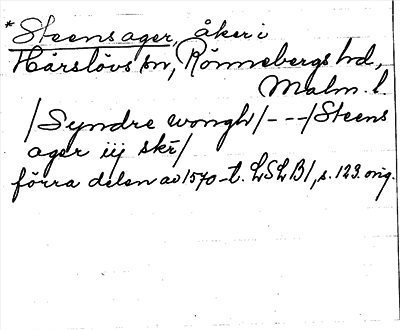 *Steensager, åker i
Härslövs sn, Rönnebergs hd,
Malm. l.
/Syndre wongh/ - - -/Steens
ager iij skr̄/
förra delen av 1570-t. LSLB1, s. 129. orig.